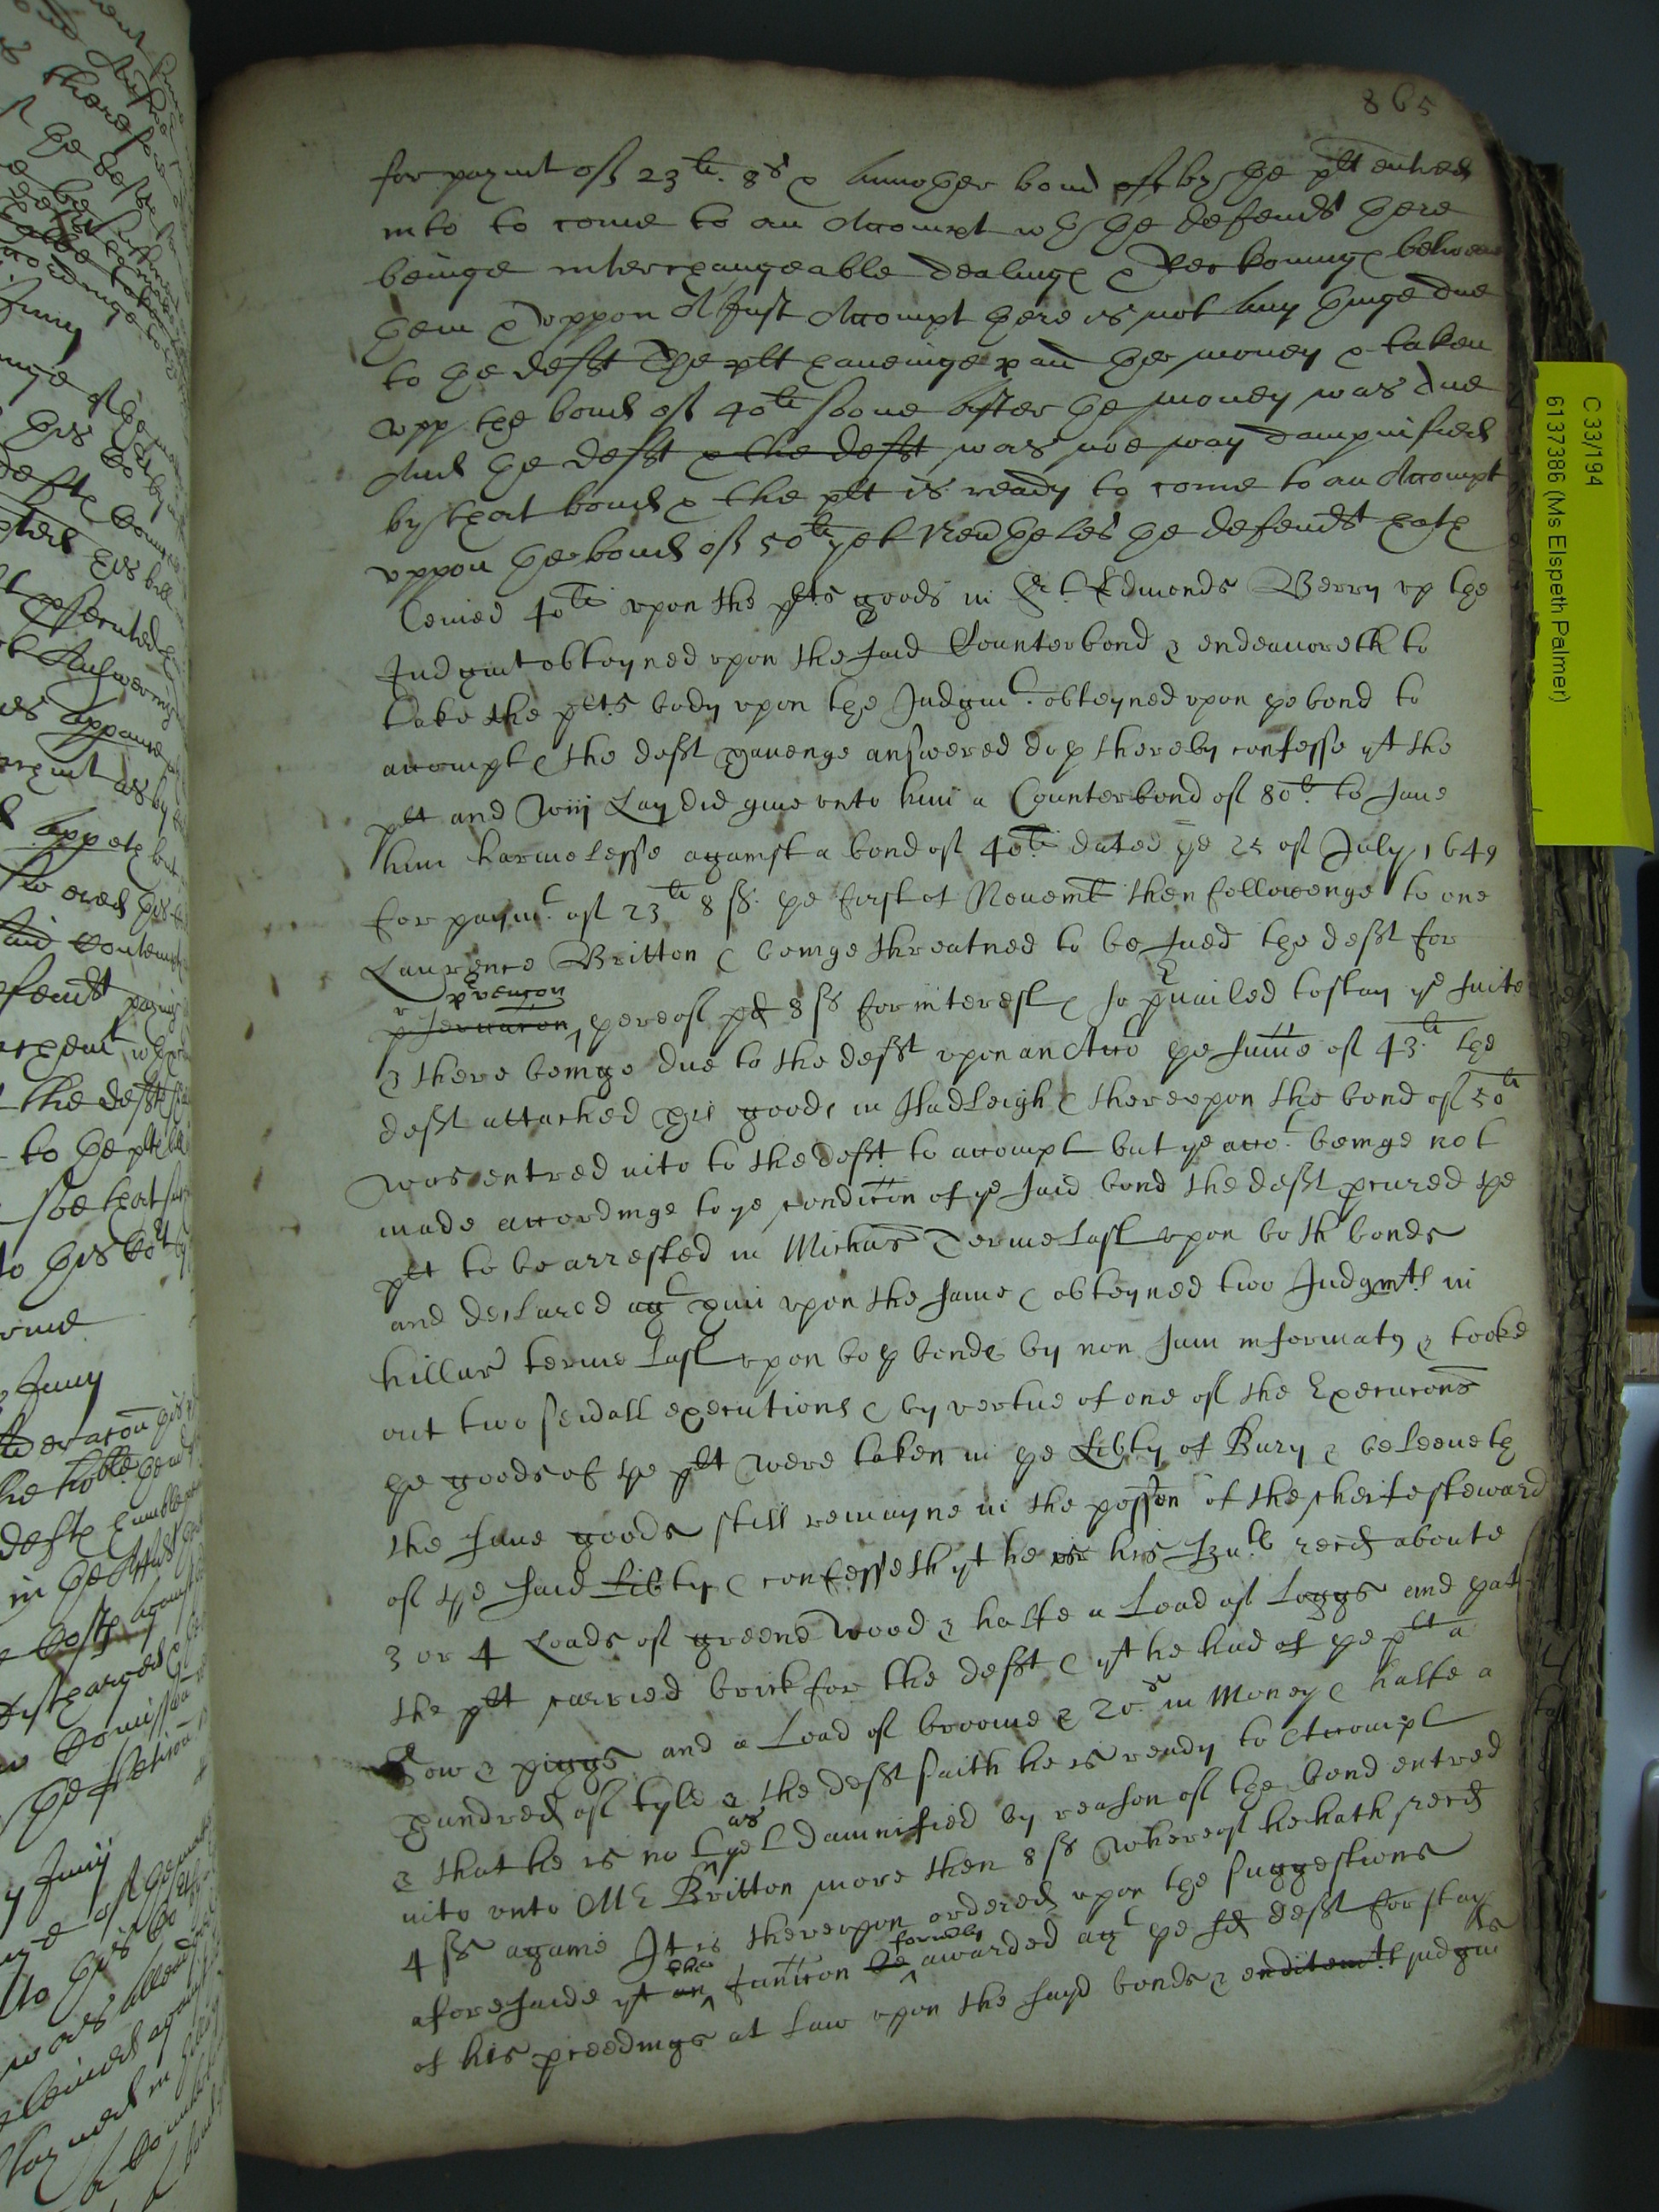 865
for paymt of 23li. 8s & Another bond of by the plt entred
into to come to an Accompt wth the defendt there
beinge interchangeable dealinge & Reckoninge betweene
them & vppon A Just Accompt there is not Any thinge due
to the defft The plt haueinge paid the money & taken
vpp the bond of 40li soone After the money was due
And the defft & the defft was noe way dampnified
by that bond & the plt is ready to come to an Accompt
vppon the bond of 50li yet Neuertheles the defendt hath
levied 40li vpon the plts goods in St. Edmonds Berry vp the
Judgmt obteyned vpon the said Counterbond & endeauoreth to
take the plts body vpon the Judgmt. obteyned vpon ye bond to
accompt & the deft hauenge answered doth thereby confesse yt the
plt and Wm Lay did giue vnto him a Counterbond of 80l. to saue
him harmelesse against a bond of 40li dated ye 25 of July 1649
for paymt. of 23li 8ss. ye first of Nouemb then followenge to one
Laurence Britton & beinge threatned to be sued the deft for
prvencon
p servacon thereof pd 8ss for interest & so pvailed to stay ye suite
& there beinge due to the deft vpon an Acco ye sume of 43li the
deft attached his goods in Hadleigh & therevpon the bond of 50li
was entred into to the deft to accompt but ye acco.t beinge not
made accordinge to ye condicon of ye said bond the deft pcured the
plt to be arrested in Michas Terme last vpon both bonds
and declared agt him vpon the same & obteyned two Judgmts in
hillar terme last vpon both bonds by non sum informatus & tooke
out two seuall executions & by vertue of one of the Execucons
the goods of ye plt were taken in ye Libty of Bury & beleeueth
the same goods still remayne in the possion of the cheife steward
of ye said Libty & confesseth yt he or his Servts recd aboute
3 or 4 Loads of greene wood & halfe a Load of Loggs and yat
the plt carried brick for the deft & yt he had of ye plt a
Sow & piggs and a Load of broome & 20s in Money & halfe a
hundred of tyle & the deft saith he is ready to Accompt
as
& that he is not yet damnified by reason of the bond entred
into vnto Mr Britton more then 8ss Whereof he hath recd
4ss againe It is therevpon ordered vpon the suggestions
the formerly
aforesaide yt an Iunccon be awarded agt ye sd deft for stay
of his pceedings at Law vpon the sayd bonds & enditemt judgmts
C 33/194
6137386 (Ms Elspeth Palmer)